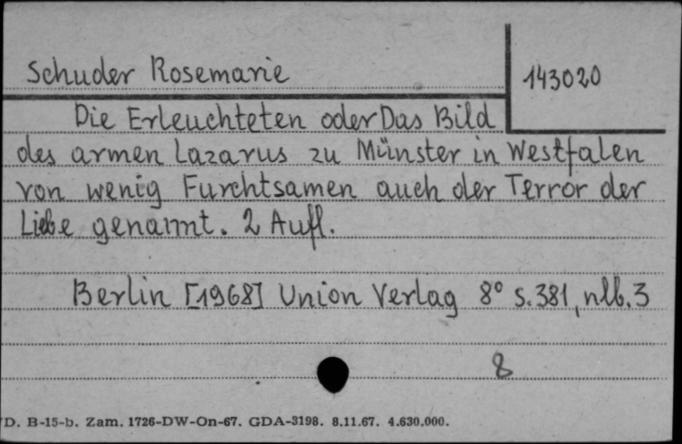 Schuder Rosemarie
143020
Die Erleuchteten oder Das Bild
des armen Lazarus zu Münster in Westfalen
von wenig Furchtsamen auch der Terror der
Liebe genannt. 2 Aufl.
Berlin [1968] Union Verlag 8° s. 381, nlb. 3
8
D. B-15-b. Zam. 1726-DW-On-67. GDA-3198. 8.11.67. 4.630.000.